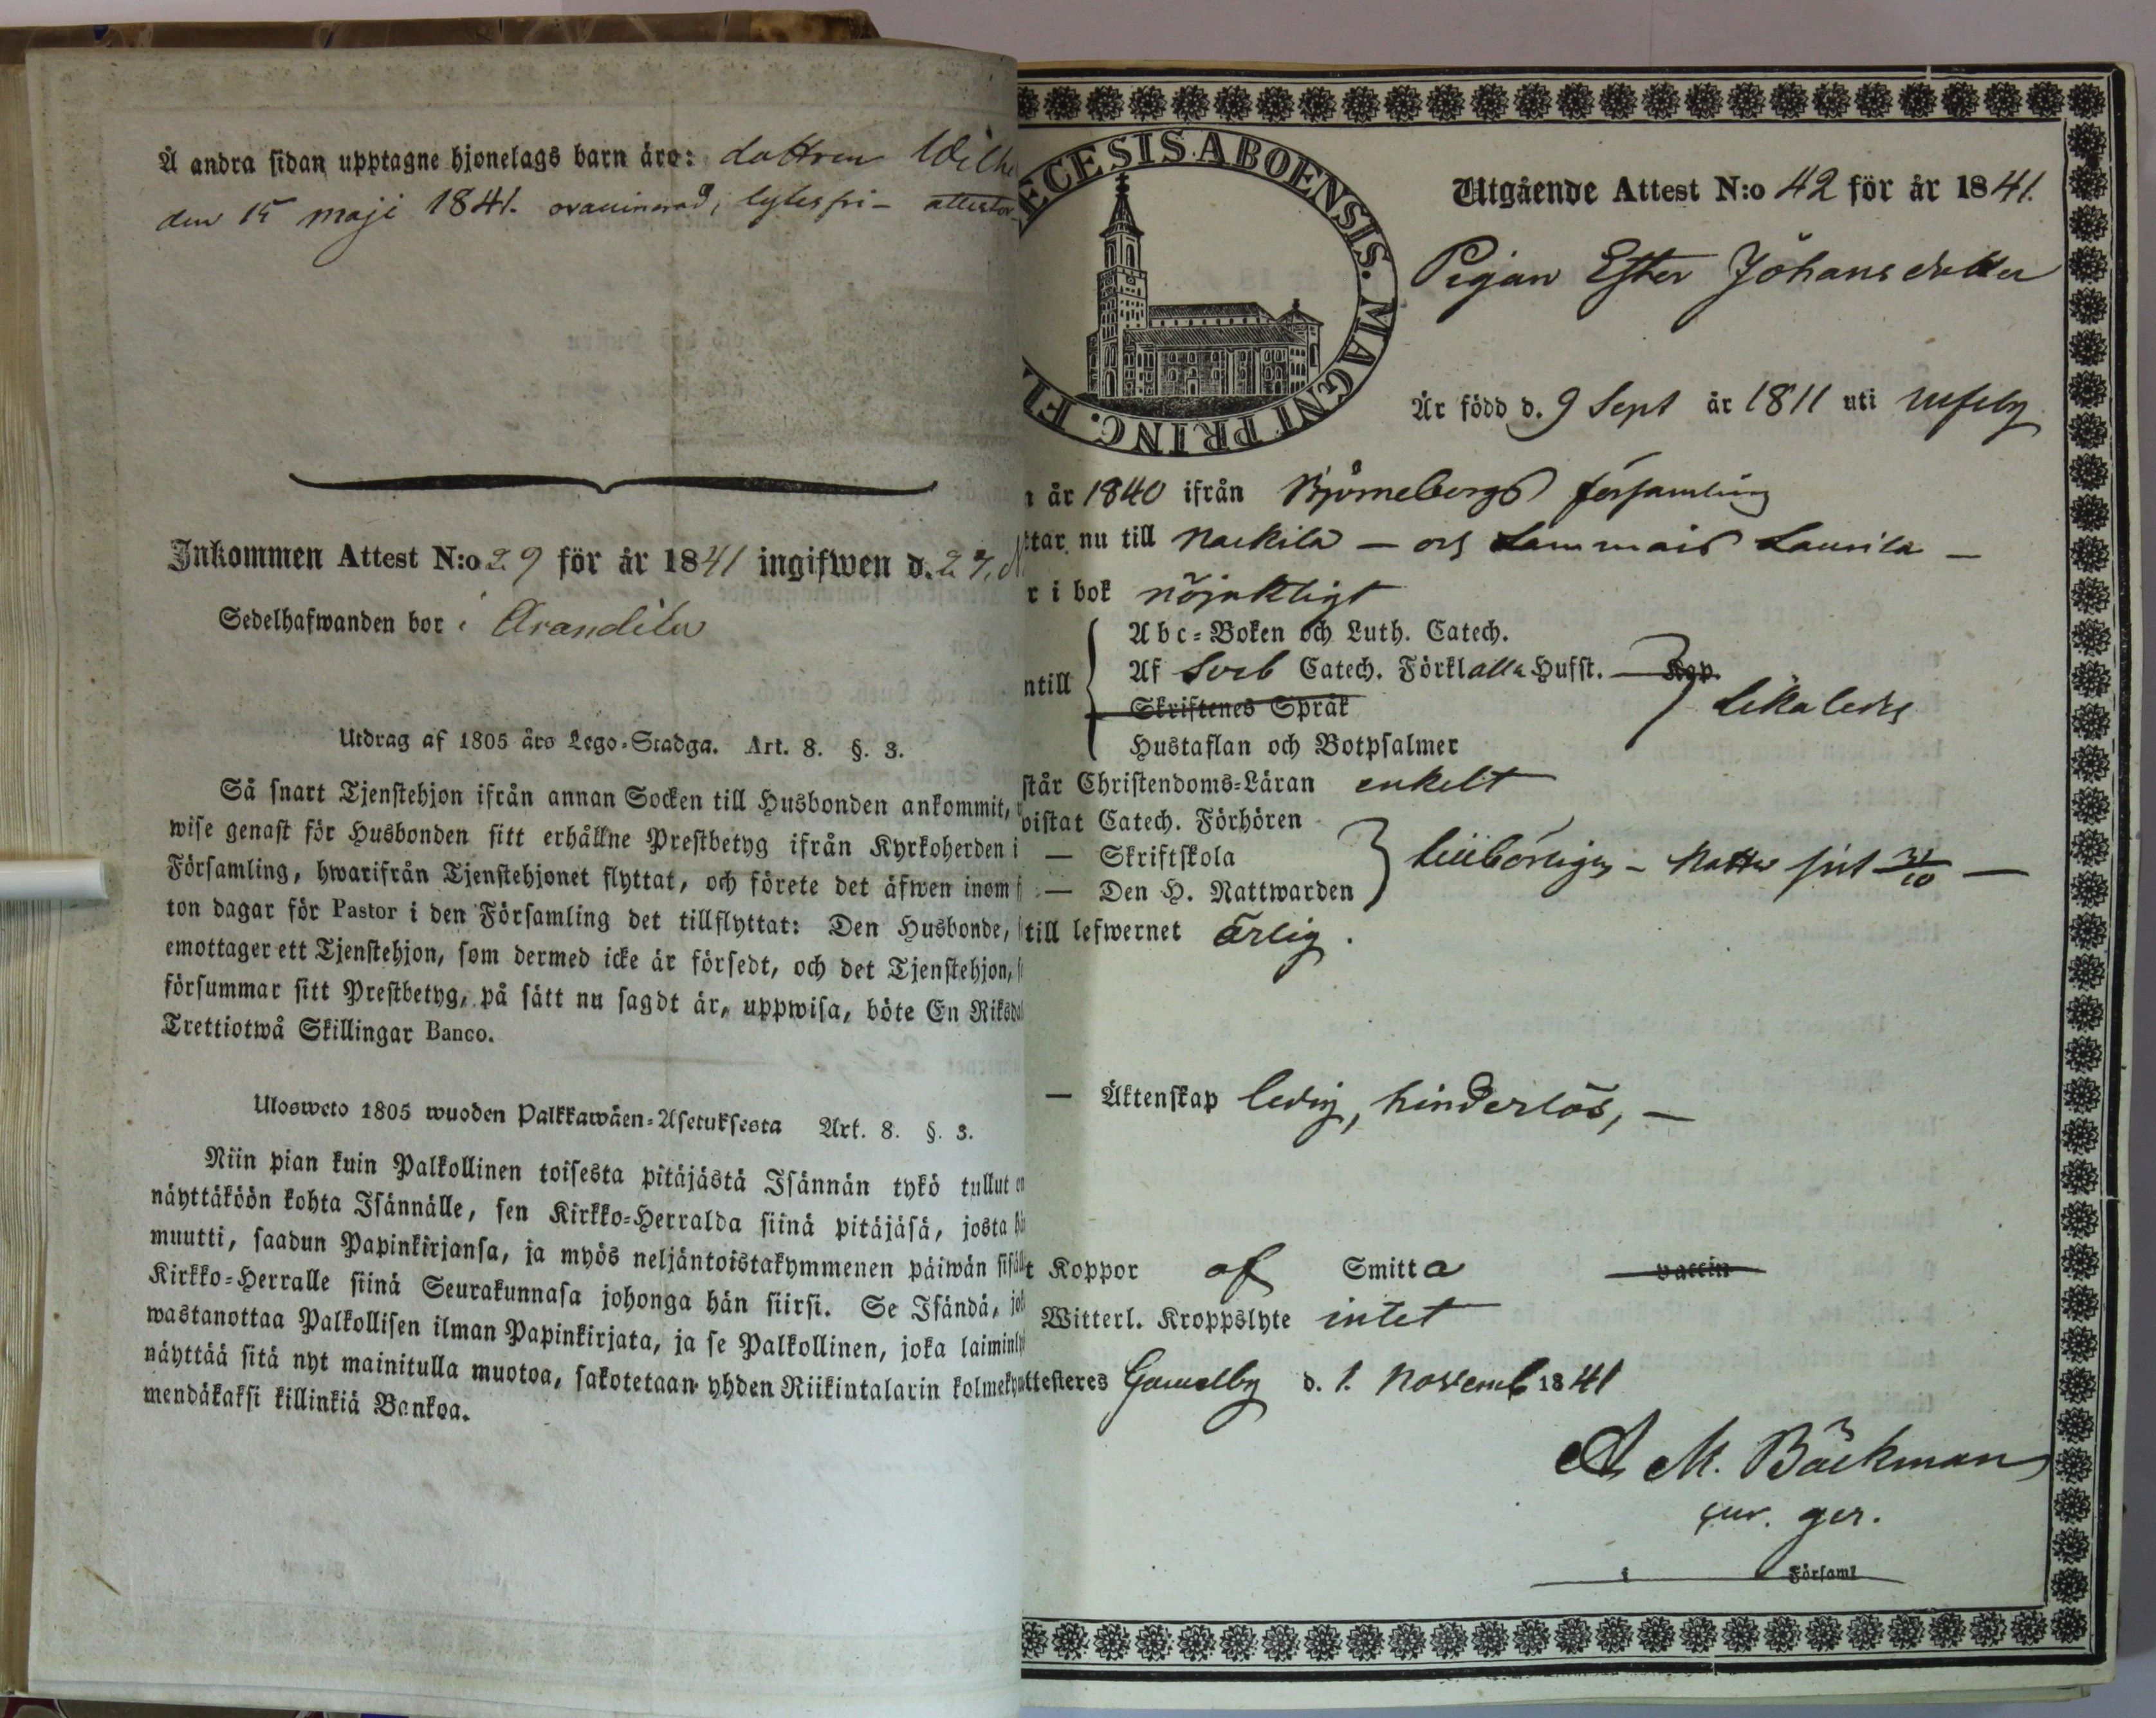 Å andra sidan upptagne hjonelags barn äro: dottren Wilhe
den 15 maji 1841. ovaccinerad, lytesfri - attesterar
Inkommen Attest N:o 29 för år 1841 ingifwen d. 27. N
Sedelhafwanden bor i Arandila
Utdrag af 1805 års Lego-Stadga. Art. 8. §. 3.
Så snart Tjenstehjon ifrån annan Socken till Husbonden ankommit,
wise genast för Husbonden sitt erhållne Prestbetyg ifrån Kyrkoherden i
Församling, hwarifrån Tjenstehjonet flyttat, och förete det äfwen inom f
ton dagar för Pastor i den Församling det tillflyttat: Den Husbonde,
emottager ett Tjenstehjon, som dermed icke är försedt, och det Tjenstehjon, s
försummar sitt Prestbetyg, på sätt nu sagdt är, uppwisa, böte En Riksdal
Trettiotwå Skillingar Banco.
Ulosweto 1805 wuoden Palkkawäen-Asetuksesta Art. 8. §. 3.
Niin pian kuin Palkollinen toisesta pitäjästä Isännän tykö tullut on
näyttäköön kohta Isännälle, sen Kirkko-Herralda siinä pitäjäsä, josta hän
muutti, saadun Papinkirjansa, ja myös neljäntoistakymmenen päiwän sisäll
Kirkko-Herralle siinä Seurakunnasa johonga hän siirsi. Se Isändä, jok
wastanottaa Palkollisen ilman Papinkirjata, ja se Palkollinen, joka laiminly
näyttää sitä nyt mainitulla muotoa, sakotetaan yhden Riikintalarin kolmeky
mendäkaksi killinkiä Bankoa.
ECESIS ABOENSIS. MAGNI PRINC. FI
Utgående Attest N:o 42 för år 1841.
Pigan Ester Johansdotter
Är född d. 9 Sept år 1811 uti Ulfsby
n år 1840 ifrån Björneborgs församling
ttar nu till Nackila - och Lammais Laurila -
r i bok nöjaktligt
ntill
Abc-Boken och Luth. Catech.
Af Sveb Catech. Förkl alla Hufst. Kap.
Skriftenes Språk
Hustaflan och Botpsalmer
likaledes
står Christendoms-Läran enkelt
vistat Catech. Förhören
— Skriftskola
— Den H. Nattwarden
tillbörligen - Nattv sist 31/10 —
till lefwernet ärlig.
— Äktenskap ledig, hinderlös, —
t Koppor af Smitta vaccin
Witterl. Kroppslyte intet
ttesteres Gamelby d. 1. Novemb 1841
A. M. Bäckman
cur. ger.
i Församl